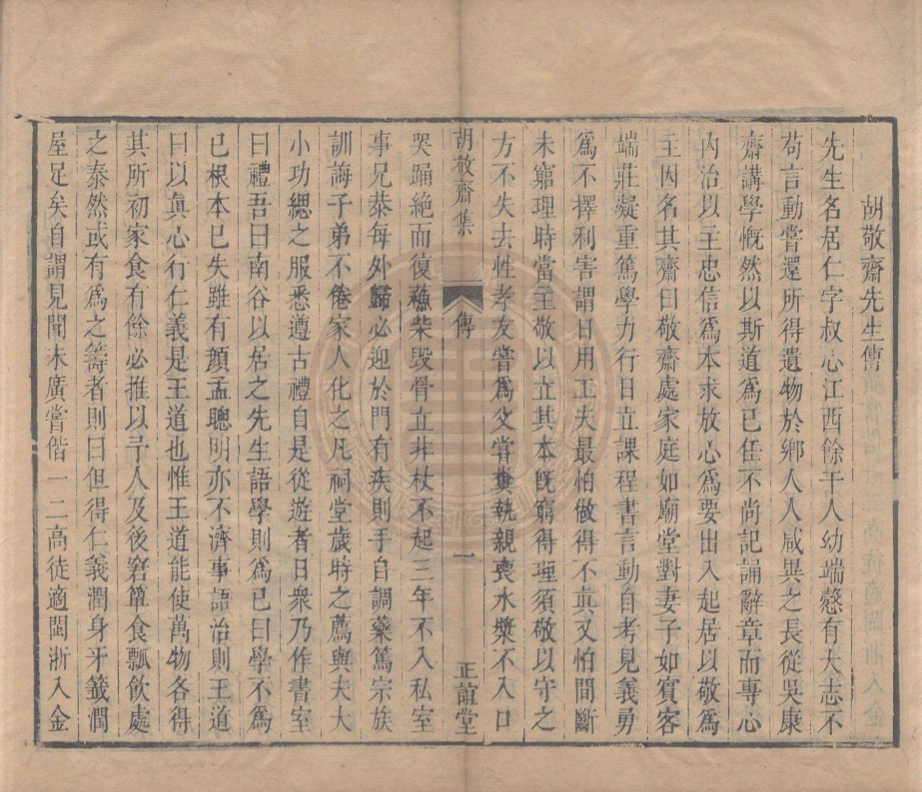 胡敬齋先生傳
先生名居仁字叔心江西餘干人幼端慤有大志不
苟言動嘗還所得遺物於鄉人人咸異之長從吳康
齋講學慨然以斯道爲已任不尚記誦辭章而專心
內治以主忠信爲本求放心爲要出入起居以敬爲
主因名其齋曰敬齋處家庭如廟堂對妻子如賓客
端莊凝重篤學力行日立課程書言動自考見義勇
爲不擇利害謂日用工夫最怕做得不眞又怕間斷
未窮理時當主敬以立其本旣窮得理須敬以守之
方不失去性孝友嘗爲父嘗糞執親喪水漿不入口
胡敬齋集
傳
一
正誼堂
哭踊絶而復蘇柴毀骨立非杖不起三年不入私室
事兄恭每外歸必迎於門有疾則手自調藥篤宗族
訓誨子弟不倦家人化之凡祠堂歲時之薦與夫大
小功緦之服悉遵古禮自是從遊者日衆乃作書室
曰禮吾曰南谷以居之先生語學則爲已曰學不爲
已根本已失雖有顏孟聰明亦不濟事語治則王道
曰以眞心行仁義是王道也惟王道能使萬物各得
其所初家食有餘必推以予人及後窘簞食瓢飲處
之泰然或有爲之籌者則曰但得仁義潤身牙籤潤
屋足矣自謂見聞未廣嘗偕一二高徒適閩浙入金